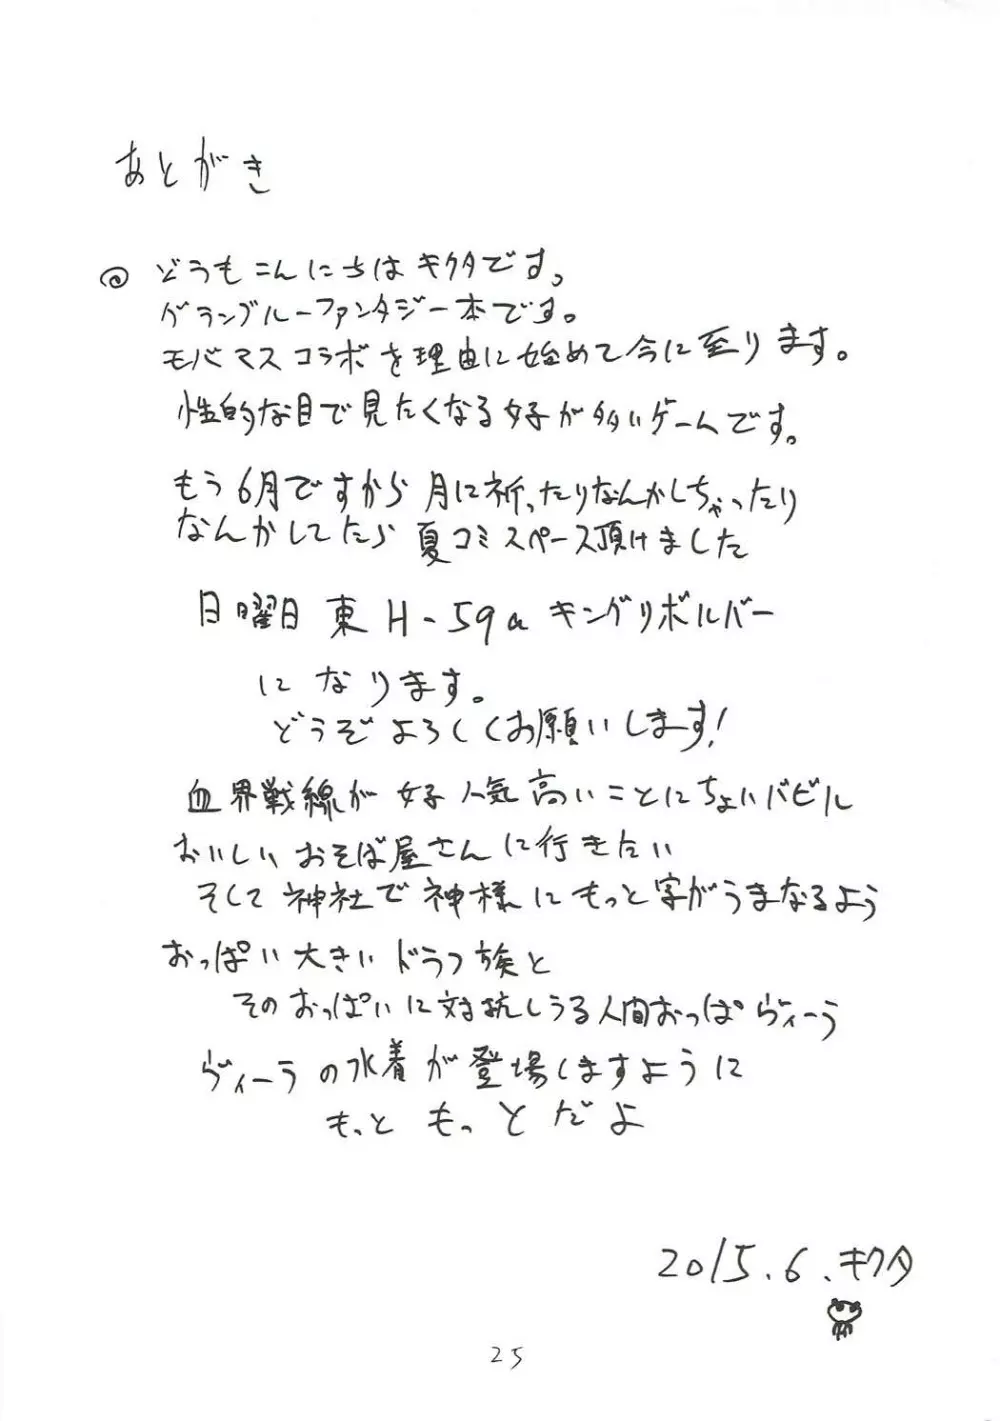 あとがき
◎ どうもこんにちはキクタです。
グランブルーファンタジー本です。
モバマスコラボを理由に始めて今に至ります。
性的な目で見たくなる女子が多いゲームです。
もう6月ですから月に祈ったりなんかしちゃったり
なんかしてたら夏コミスペース頂けました
日曜日 東 H-59a キングリボルバー
になります。
どうぞよろしくお願いします!
血界戦線が女子人気高いことにちょいバビル
おいしいおそば屋さんに行きたい
そして神社で神様にもっと字がうまなるよう
おっぱい大きいドラフ族と
そのおっぱいに対抗しうる人間おっぱヴィーラ
ヴィーラの水着が登場しますように
もっと もっとだよ
2015.6.キクタ
25